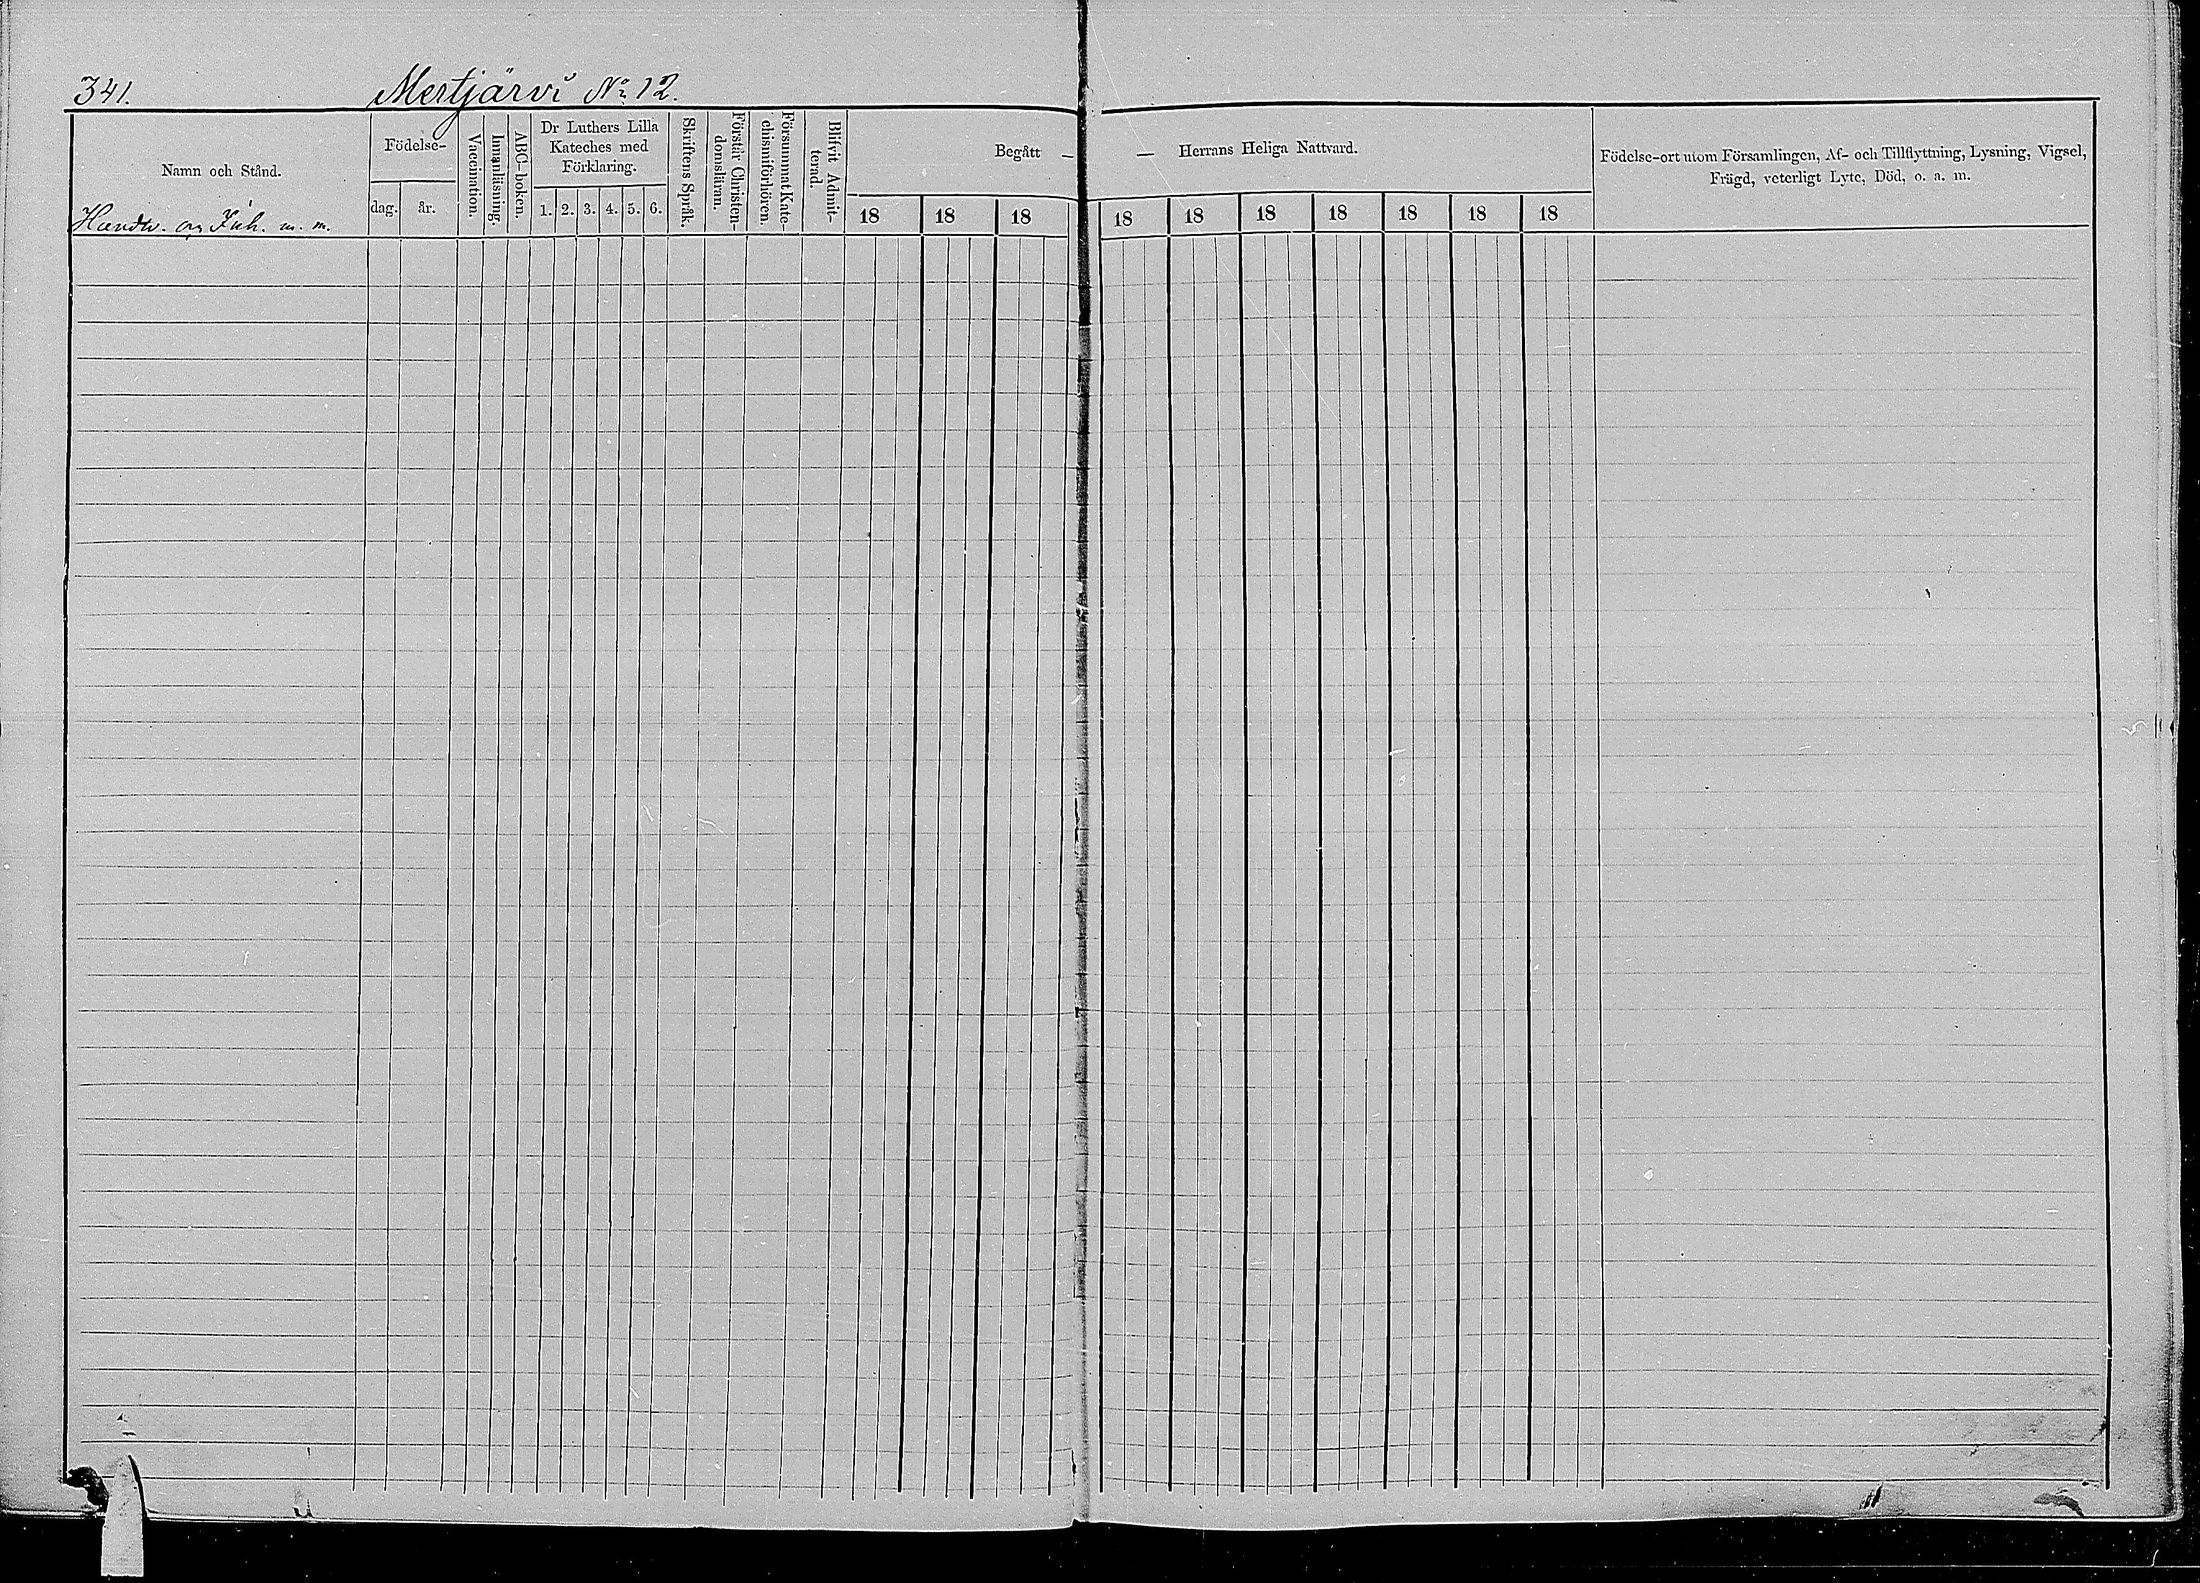 341.
Mertjärvi No 12.
Namn och Stånd.
Födelse-
dag.
år.
Vaccination.
Innanläsning.
ABC-boken.
Dr Luthers Lilla
Kateches med
Förklaring.
1. 2. 3. 4. 5. 6.
Skriftens Språk.
Förstår Christen-
domsläran.
Försummat Kate-
chismiförhören.
Blifvit Admit-
terad.
Begått —
18 18 18
— Herrans Heliga Nattvard.
18 18 18 18 18 18 18
Födelse-ort utom Församlingen, Af- och Tillflyttning, Lysning, Vigsel,
Frägd, veterligt Lyte, Död, o. a. m.
m. m.